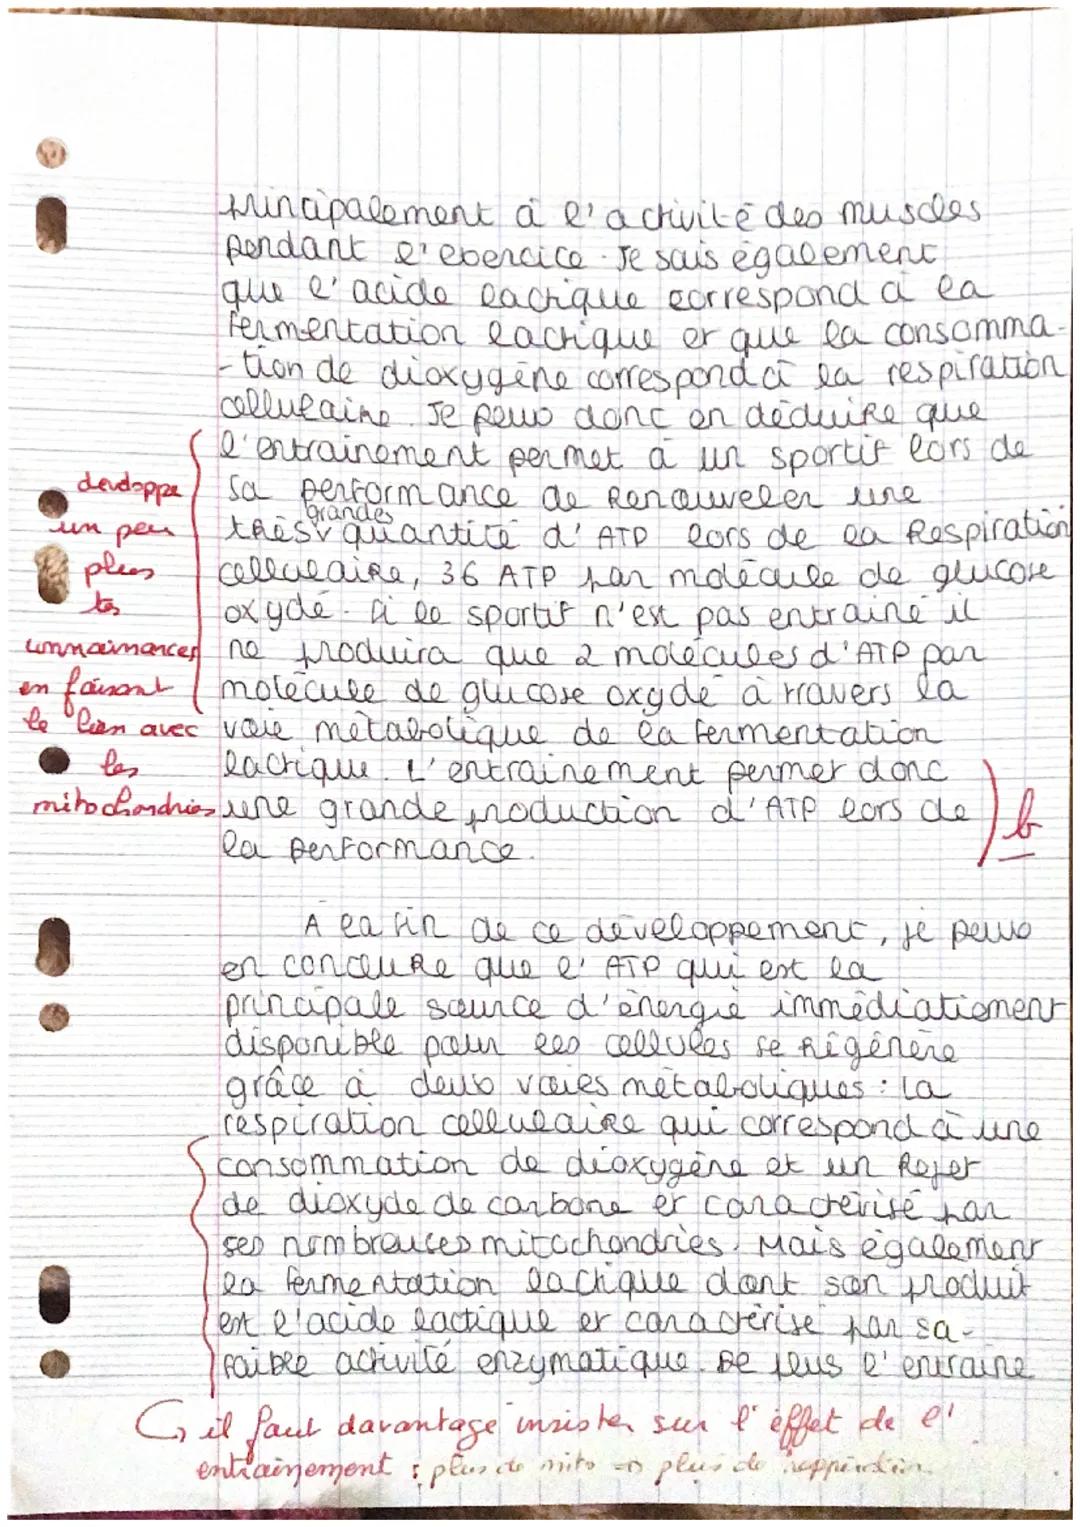 principalement à l'activité des muscles
pendant l'exercice. Je sais également
que l'acide lactique correspond à la
fermentation lactique et que la consomma-
-tion de dioxygène correspond à la respiration
cellulaire. Je peux donc en déduire que
l'entrainement permet à un sportif lors de
sa performance de renouveler une
très grandes quantité d'ATP lors de la Respiration
cellulaire, 36 ATP par molécule de glucose
oxydé. Si le sportif n'est pas entrainé il
ne produira que 2 molécules d'ATP par
molécule de glucose oxydé à travers la
voie métabolique de la fermentation
lactique. L'entrainement permet donc
une grande production d'ATP lors de
la performance.
developpe
un peu
plus
tes
connaissances
en faisant
le lien avec
les
mitochondries
b
A la fin de ce développement, je peux
en conclure que l'ATP qui est la
principale source d'énergie immédiatement
disponible pour les cellules se régénère
grâce à deux voies métaboliques : la
respiration cellulaire qui correspond à une
consommation de dioxygène et un Rejet
de dioxyde de carbone et caractérisé par
ses nombreuses mitochondries. Mais également
la fermentation lactique dont son produit
est l'acide lactique et caractérisé par sa
faible activité enzymatique. De plus l'entraine
il faut davantage insister sur l'effet de l'
entrainement : plus de mito => plus de respiration.